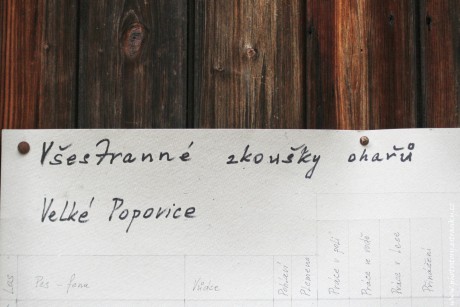 Všestranné zkoušky ohařů
Velké Popovice
Los
Pes - fena
Vůdce
Pohlaví
Plemeno
Práce v poli
Práce v vodě
Práce v lese
Přinášení